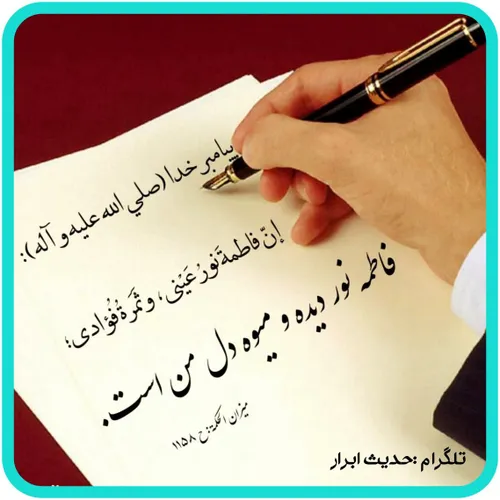 پیامبر خدا (صلي الله عليه و آله):
إنّ فاطمةَ نورُ عَیْنی، و ثمَرَةُ فُؤادی؛
فاطمه نور دیده و میوه دل من است.
میزان الحکمة: ح ۱۱۵۸
تلگرام :حدیث ابرار